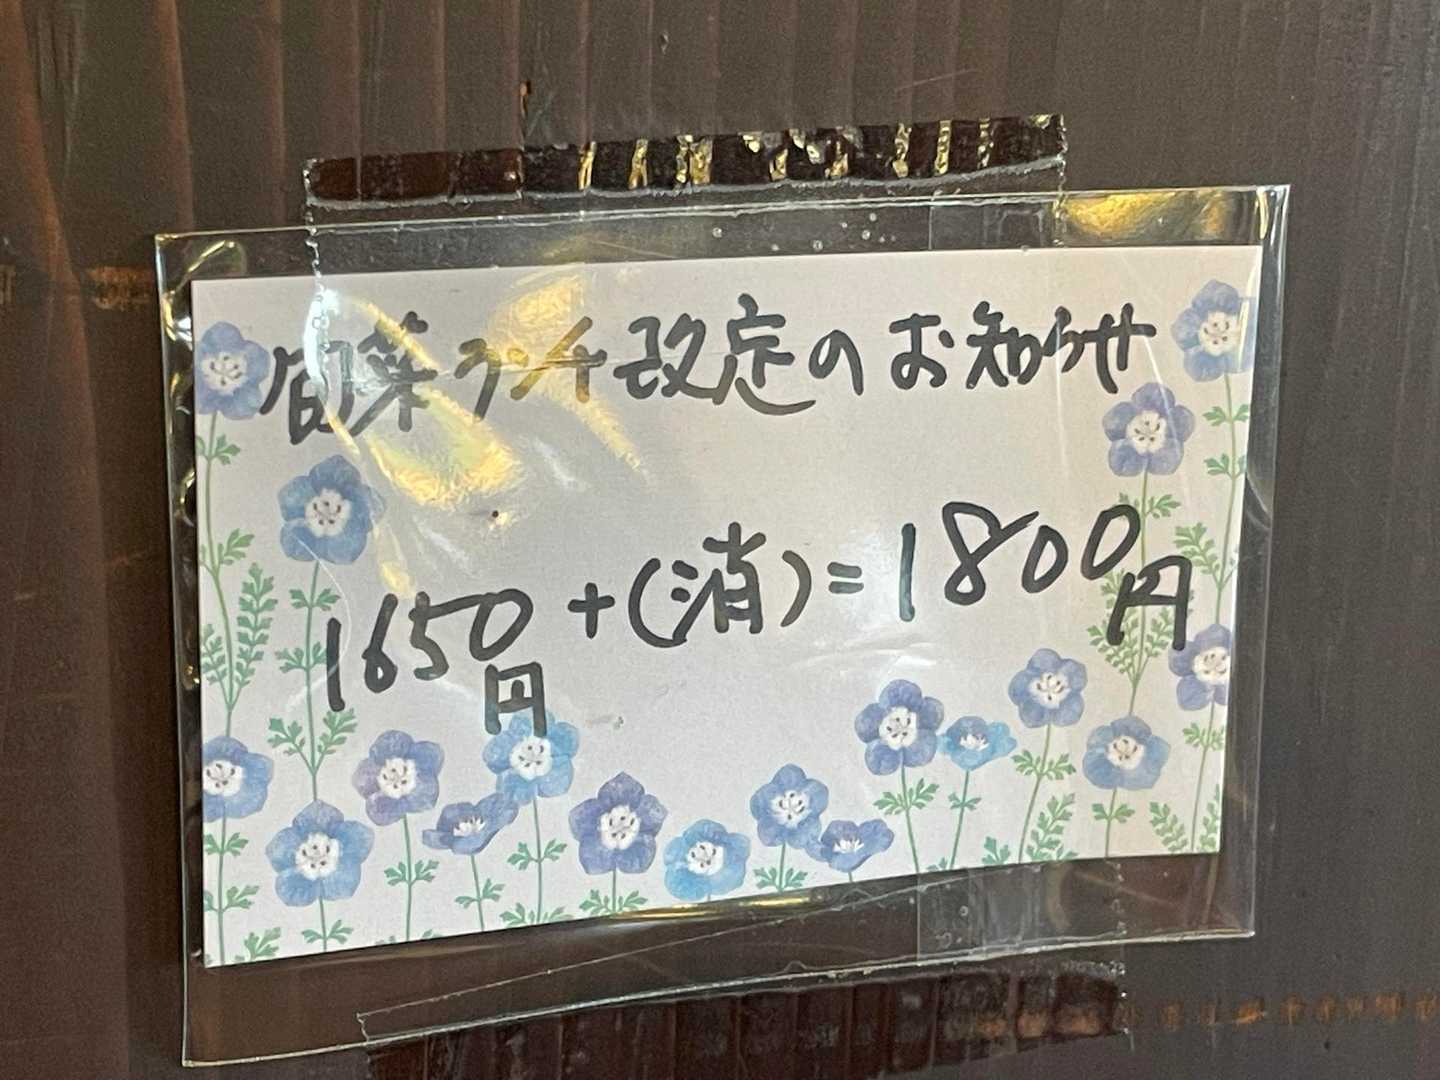 旬菜ランチ改定のお知らせ
1650円+(消)=1800円